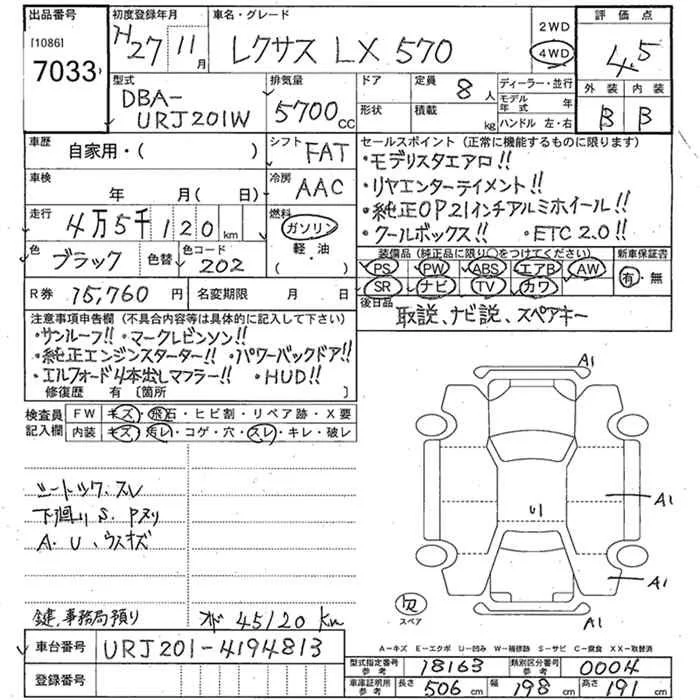 出品番号 初度登録年月 車名・グレード 評価点
[1086] 7033 H27 11月 レクサス LX 570 2WD 4WD 4.5
型式 排気量 ドア 定員 8人 ディーラー・並行 外装 内装
DBA-URJ201W 5700cc 形状 積載 kg モデル年式 年 ハンドル 左・右 B B
車歴 自家用・( ) シフト FAT
セールスポイント (正常に機能するものに限ります)
・モデリスタエアロ!!
車検 年 月(日) 冷房 AAC
・リヤエンターテイメント!!
・純正OP21インチアルミホイール!!
走行 4万5千120km 燃料 ガソリン 軽・油 ( )
・クールボックス!! ・ETC2.0!!
色 ブラック 色替 色コード 202
装備品 (純正品に限り○をつけてください) 新車保証書
PS PW ABS エアB AW 有・無
R券 15,760円 名変期限 月 日
SR ナビ TV カワ
後日品 取説、ナビ説、スペアキー
注意事項申告欄 (不具合内容等は具体的に記入して下さい)
・サンルーフ!! ・マークレビンソン!!
・純正エンジンスターター!! ・パワーバックドア!!
・エルフォード4本出しマフラー!! ・HUD!!
修復歴 有〔箇所 〕
検査員記入欄 FW キズ・飛石・ヒビ割・リペア跡・X要
内装 キズ・汚レ・コゲ・穴・スレ・キレ・破レ
A1
シートシワ、スレ
下廻りS.Pヌリ
A.U、ウスキズ
U1
A1
A1
鍵、事務局預り 45120km
スペア
A1
A-キズ E-エクボ U-凹み W-補修跡 S-サビ C-腐食 XX-取替済
車台番号 URJ201-4194813
型式指定番号 参考 18163 類別区分番号 参考 0004
登録番号
車庫証明用 参考 長さ 506cm 幅 198cm 高さ 191cm